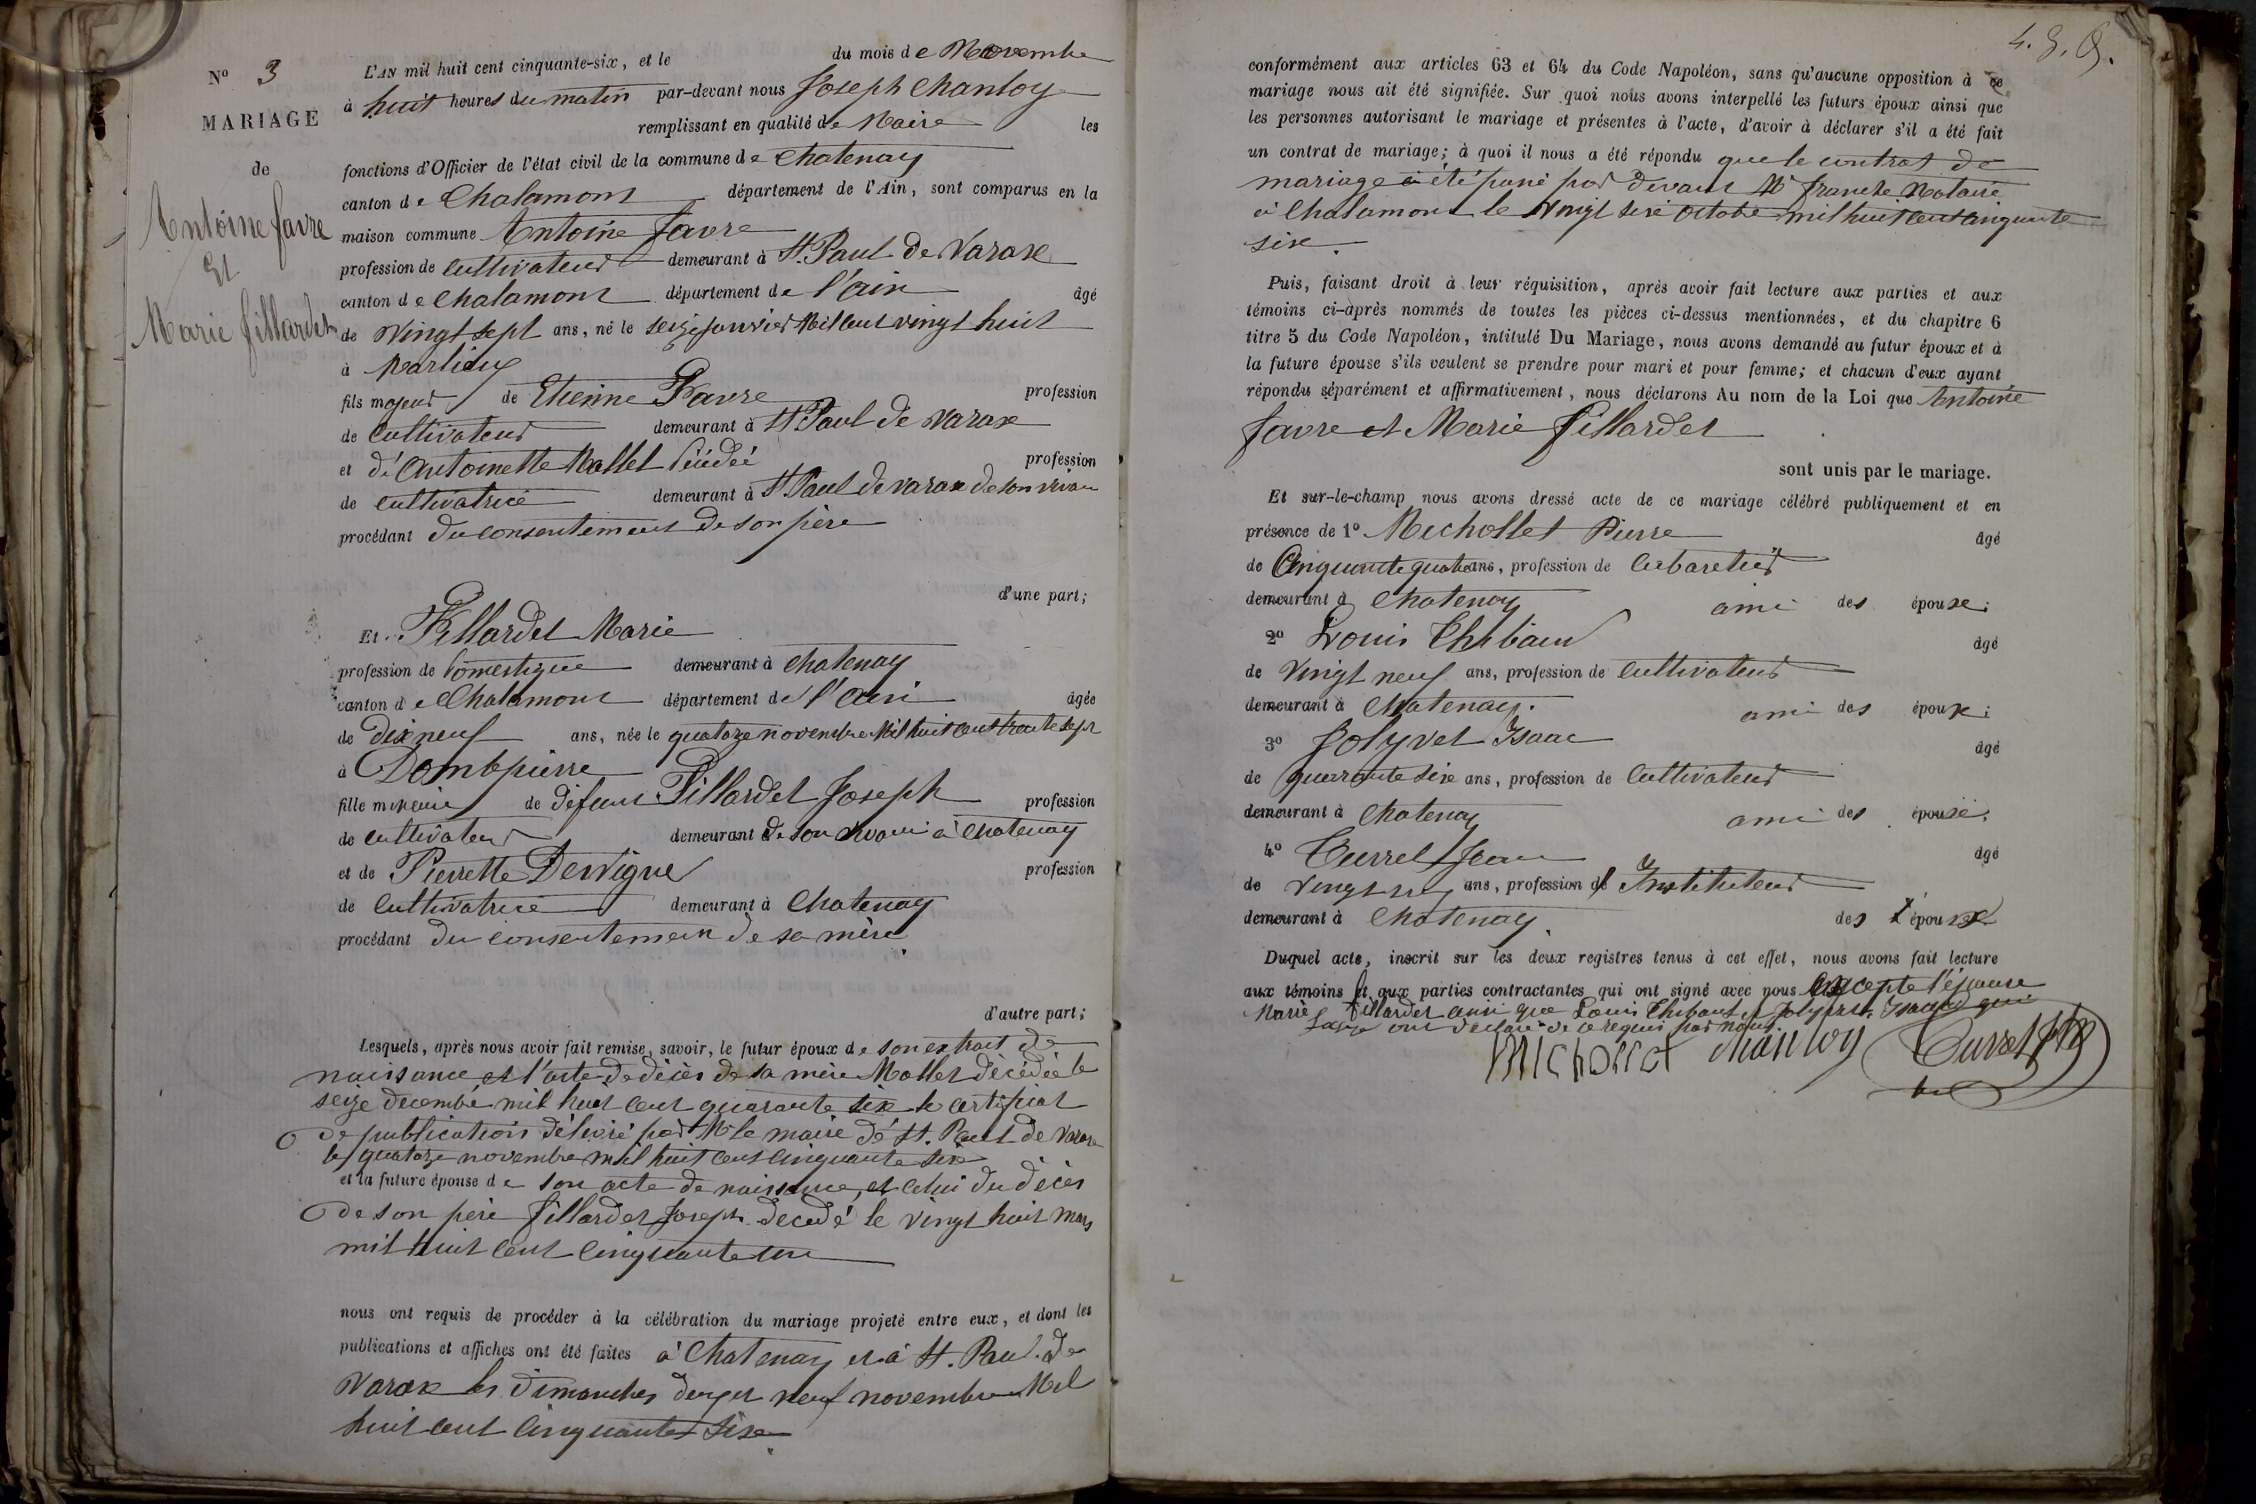 N° 3
MARIAGE
de
Antoine favre
Et
Marie fillardet
L'AN mil huit cent cinquante-six, et le du mois de Novembre
à huit heures du matin par-devant nous Joseph Chanloy
remplissant en qualité de Maire les
fonctions d'Officier de l'état civil de la commune de Chatenay
canton de Chalamont département de l'Ain, sont comparus en la
maison commune Antoine favre
profession de Cultivateur demeurant à St. Paul de Varax
canton de Chalamont département de l'ain âgé
de vingt sept ans, né le seize janvier Mil cent vingt huit
à Marlieux
fils majeur de Etienne Favre profession
de Cultivateur demeurant à St Paul de Varax
et de Antoinette Mallet profession
de Cultivatrice demeurant à St Paul de varax de son vivan
procédant du consentement de son père
d'une part;
Et Fillardet Marie
profession de Domestique demeurant à Chatenay
canton de Chalamont département de l'ain âgée
de dix neuf ans, née le quatorze novembre Mil huit cent trente sept
à Dompierre
fille mineure de défunt Fillardet Joseph profession
de cultivateur demeurant de son vivan à Chatenay
et de Pierrette Dervigne profession
de Cultivatrice demeurant à Chatenay
procédant du consentement de sa mère
d'autre part;
Lesquels, après nous avoir fait remise, savoir, le futur époux de son extrait de
naissance et l'acte de décès de sa mère Mallet décédée le
seize decembre mil huit cent quarante six le certificat
de publications délivré par Mr le maire de St. Paul de Varax
le quatorze novembre mil huit cent cinquante six
et la future épouse de son acte de naissance, et celui du décès
de son père fillardet Joseph décédé le vingt huit mars
mil huit cent cinquante un
nous ont requis de procéder à la célébration du mariage projeté entre eux, et dont les
publications et affiches ont été faites à Chatenay et à St. Paul de
Varax les dimanches deux et neuf novembre Mil
huit cent cinquante six
conformément aux articles 63 et 64 du Code Napoléon, sans qu'aucune opposition à ce
mariage nous ait été signifiée. Sur quoi nous avons interpellé les futurs époux ainsi que
les personnes autorisant le mariage et présentes à l'acte, d'avoir à déclarer s'il a été fait
un contrat de mariage; à quoi il nous a été répondu que le contrat de
mariage a été passé par devant Me franche Notaire
à Chalamont le vingt six octobre mil huit cent cinquante
six.
Puis, faisant droit à leur réquisition, après avoir fait lecture aux parties et aux
témoins ci-après nommés de toutes les pièces ci-dessus mentionnées, et du chapitre 6
titre 5 du Code Napoléon, intitulé Du Mariage, nous avons demandé au futur époux et à
la future épouse s'ils veulent se prendre pour mari et pour femme; et chacun d'eux ayant
répondu séparément et affirmativement, nous déclarons Au nom de la Loi que Antoine
favre et Marie Fillardet
sont unis par le mariage.
Et sur-le-champ nous avons dressé acte de ce mariage célébré publiquement et en
présence de 1° Michollet Pierre âgé
de Cinquante quatre ans, profession de Cabaretier
demeurant à Chatenay ami des époux;
2° Louis Thibaud âgé
de vingt neuf ans, profession de Cultivateur
demeurant à Chatenay. ami des époux;
3° Jolyvet Isaac âgé
de quarante six ans, profession de Cultivateur
demeurant à Chatenay ami des époux;
4° Curret Jean âgé
de vingt ans, profession d Instituteur
demeurant à Chatenay. des époux
Duquel acte, inscrit sur les deux registres tenus à cet effet, nous avons fait lecture
aux témoins et aux parties contractantes qui ont signé avec nous excepté l'épouse
Marie Fillardet ainsi que Louis Thibaut et Jolyvet Isaac qui
ont déclaré de ce requis par nous.
Michollet Chanloy Curret